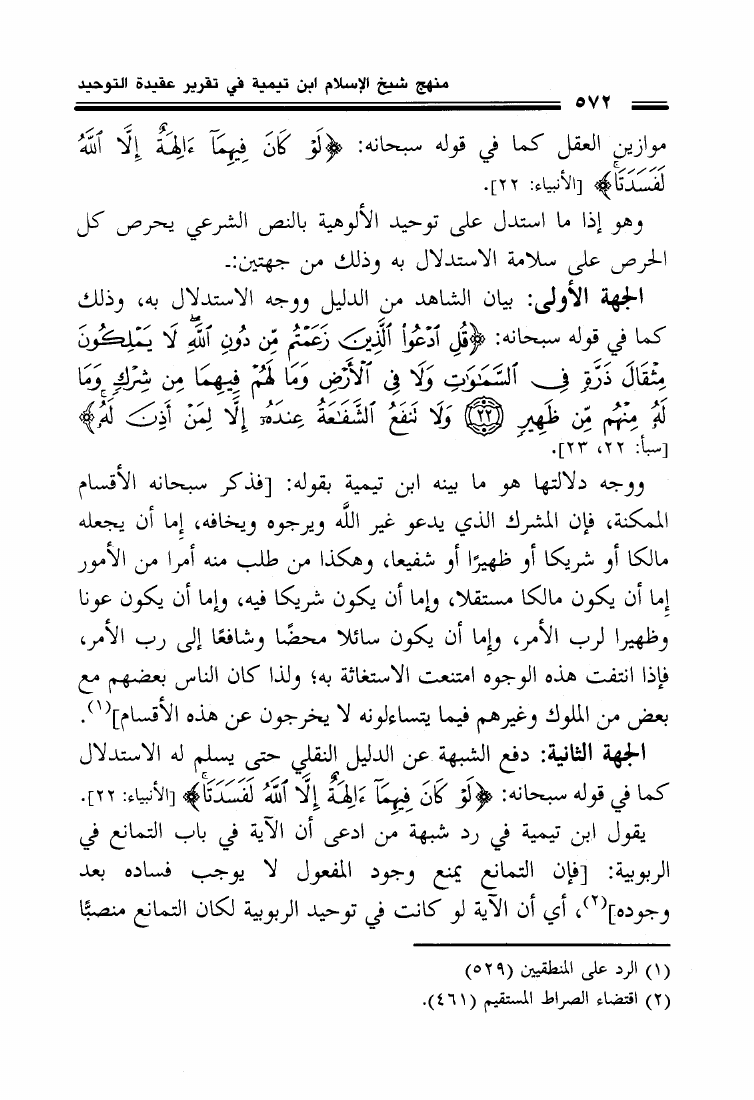 منهج شيخ الإسلام ابن تيمية في تقرير عقيدة التوحيد
٥٧٢
موازين العقل كما في قوله سبحانه: ﴿لَوْ كَانَ فِيهِمَآ ءَالِهَةٌ إِلَّا ٱللَّهُ
لَفَسَدَتَا﴾ [الأنبياء: ٢٢].
وهو إذا ما استدل على توحيد الألوهية بالنص الشرعي يحرص كل
الحرص على سلامة الاستدلال به وذلك من جهتين:-
الجهة الأولى: بيان الشاهد من الدليل ووجه الاستدلال به، وذلك
كما في قوله سبحانه: ﴿قُلِ ٱدْعُوا۟ ٱلَّذِينَ زَعَمْتُم مِّن دُونِ ٱللَّهِ ۖ لَا يَمْلِكُونَ
مِثْقَالَ ذَرَّةٍ فِى ٱلسَّمَٰوَٰتِ وَلَا فِى ٱلْأَرْضِ وَمَا لَهُمْ فِيهِمَا مِن شِرْكٍ وَمَا
لَهُۥ مِنْهُم مِّن ظَهِيرٍ ﴿٢٢﴾ وَلَا تَنفَعُ ٱلشَّفَٰعَةُ عِندَهُۥٓ إِلَّا لِمَنْ أَذِنَ لَهُۥ ۚ﴾
[سبأ: ٢٢، ٢٣].
ووجه دلالتها هو ما بينه ابن تيمية بقوله: [فذكر سبحانه الأقسام
الممكنة، فإن المشرك الذي يدعو غير اللَّه ويرجوه ويخافه، إما أن يجعله
مالكا أو شريكا أو ظهيرًا أو شفيعا، وهكذا من طلب منه أمرا من الأمور
إما أن يكون مالكا مستقلا، وإما أن يكون شريكا فيه، وإما أن يكون عونا
وظهيرا لرب الأمر، وإما أن يكون سائلا محضًا وشافعًا إلى رب الأمر،
فإذا انتفت هذه الوجوه امتنعت الاستغاثة به؛ ولذا كان الناس بعضهم مع
بعض من الملوك وغيرهم فيما يتساءلونه لا يخرجون عن هذه الأقسام](١).
الجهة الثانية: دفع الشبهة عن الدليل النقلي حتى يسلم له الاستدلال
كما في قوله سبحانه: ﴿لَوْ كَانَ فِيهِمَآ ءَالِهَةٌ إِلَّا ٱللَّهُ لَفَسَدَتَا ۚ﴾ [الأنبياء: ٢٢].
يقول ابن تيمية في رد شبهة من ادعى أن الآية في باب التمانع في
الربوبية: [فإن التمانع يمنع وجود المفعول لا يوجب فساده بعد
وجوده](٢)، أي أن الآية لو كانت في توحيد الربوبية لكان التمانع منصبًا
(١) الرد على المنطقيين (٥٢٩)
(٢) اقتضاء الصراط المستقيم (٤٦١).